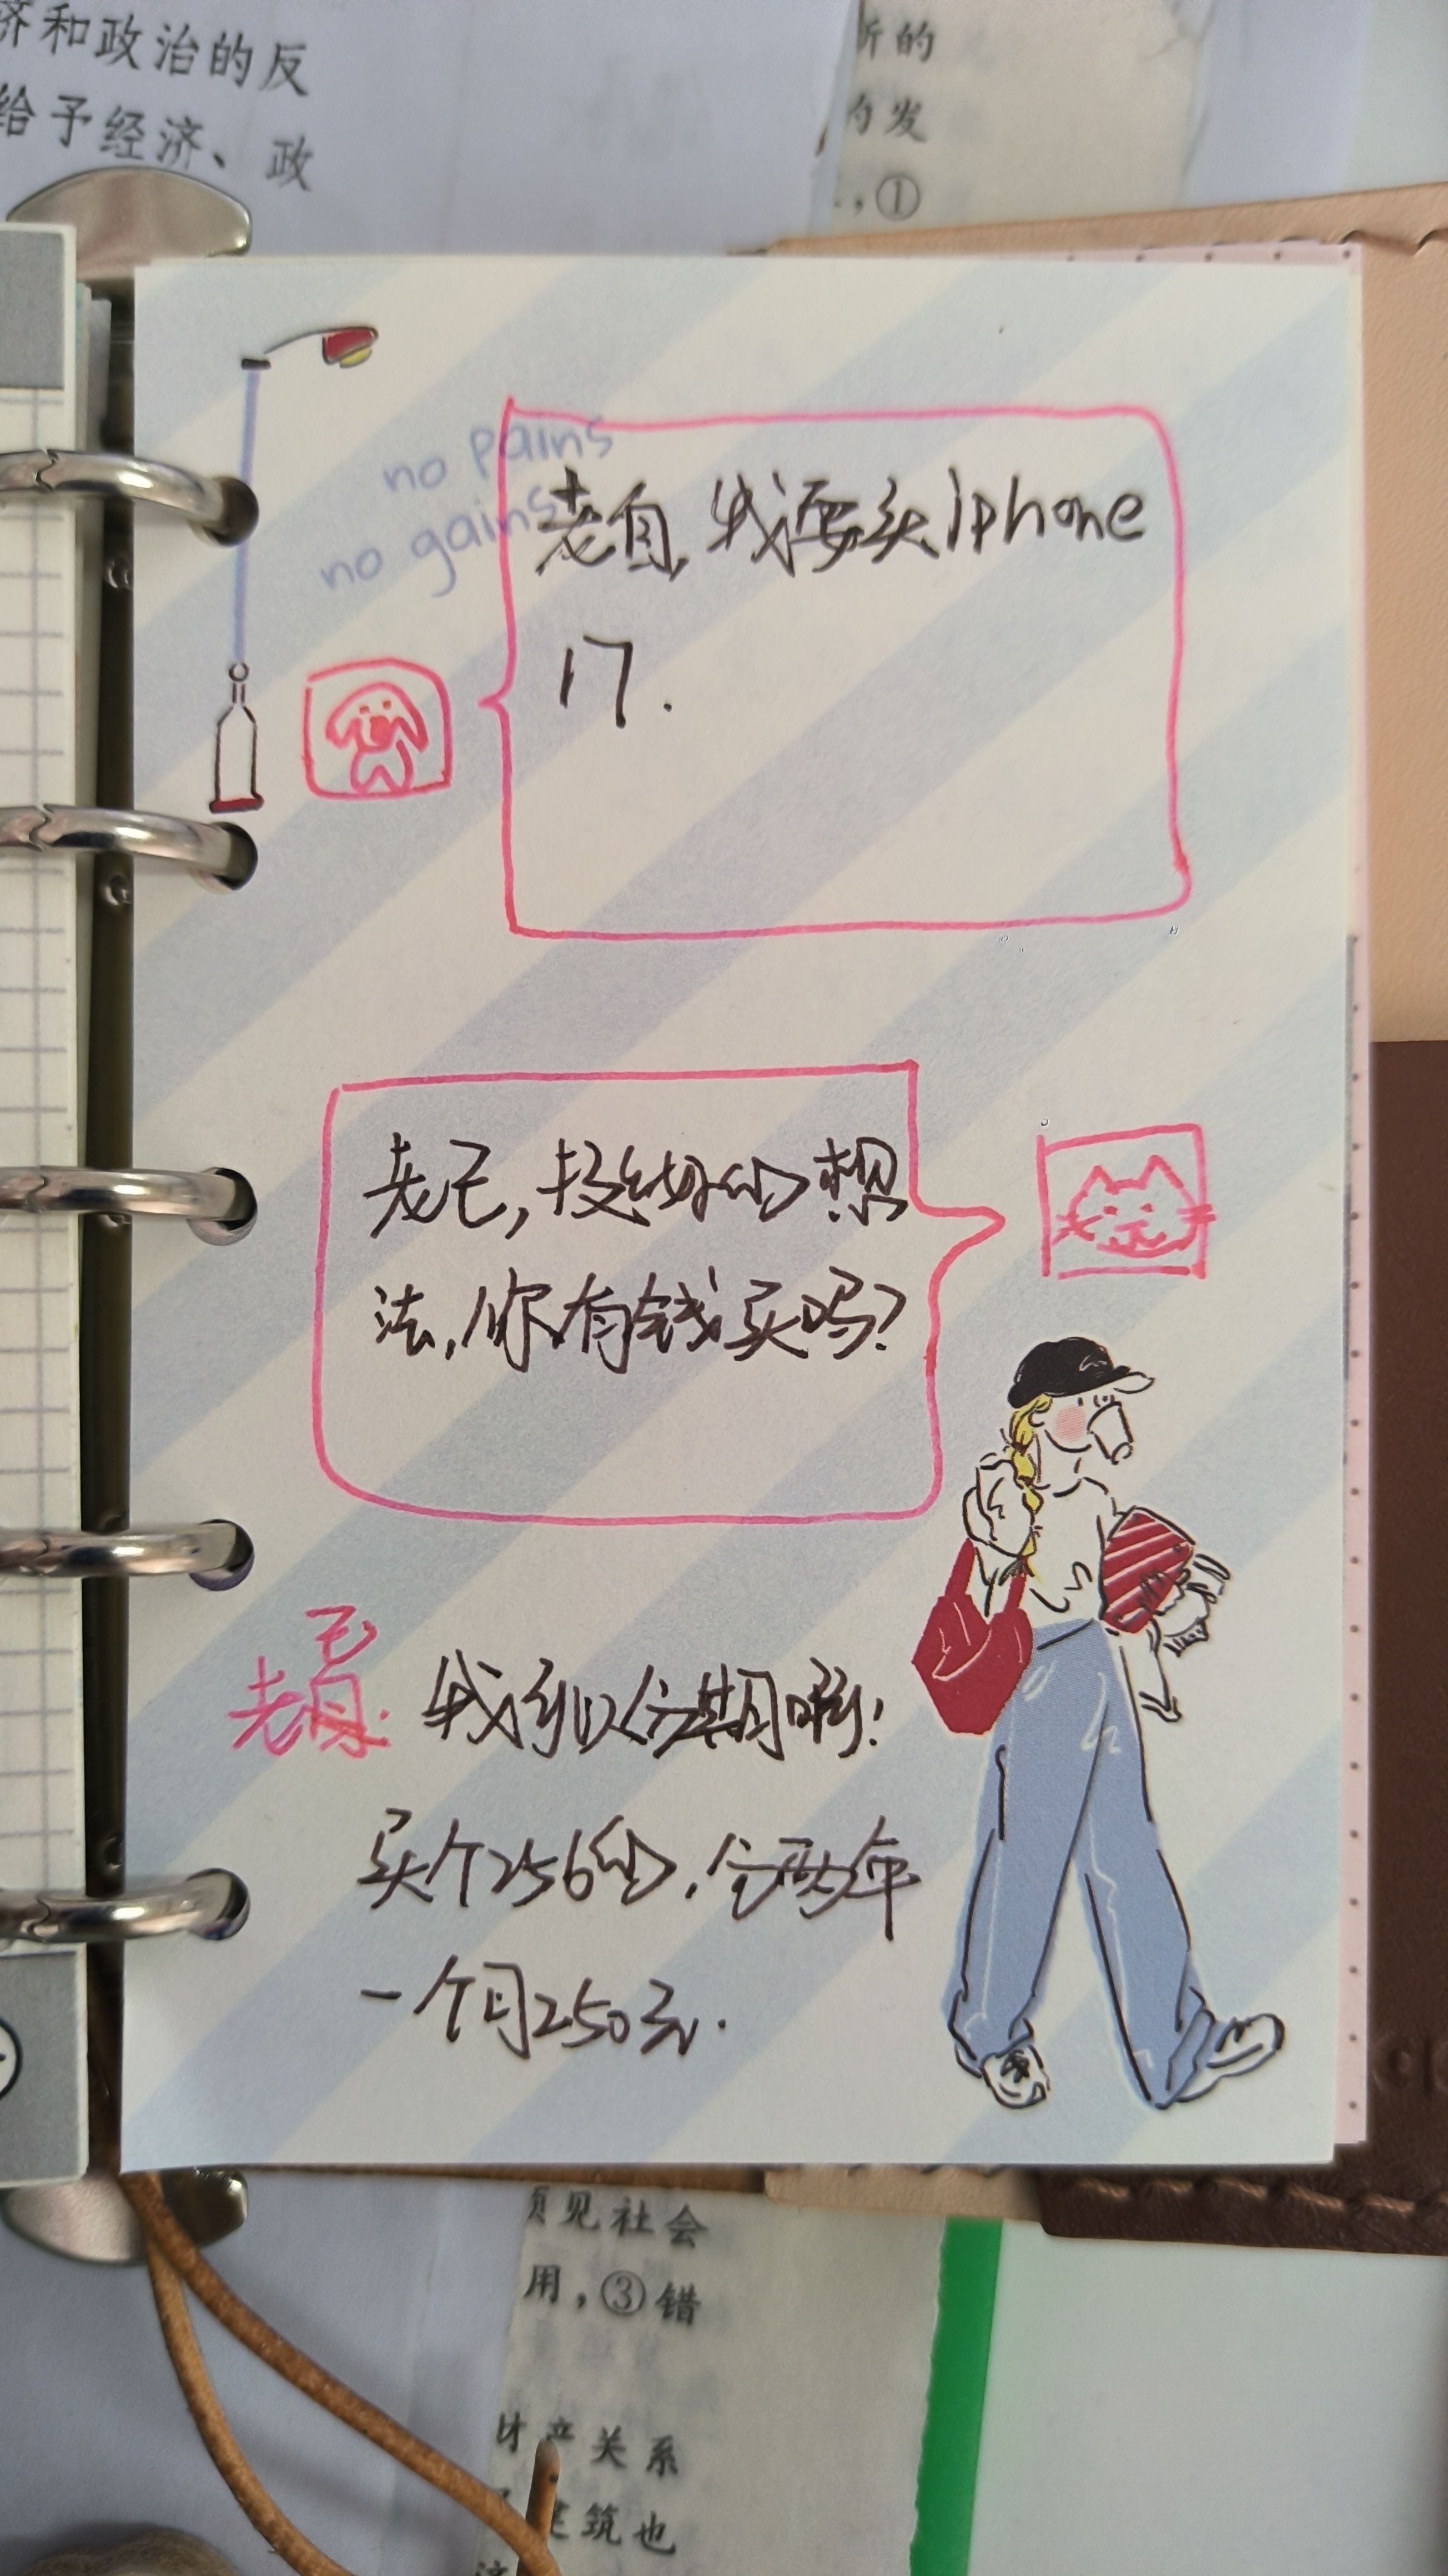 济和政治的反
给予经济、政
的
发
,①
no pains
no gains
老自,我要买iphone
17.
老己,投纳的想
法,你有钱买吗?
老己:我可以分期啊!
买个256的,分两年
一个月250元.
见社会
用,③错
关系
筑也